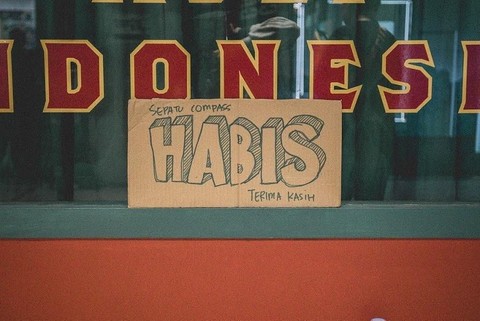 NDONESI
SEPATU COMPASS
HABIS
TERIMA KASIH